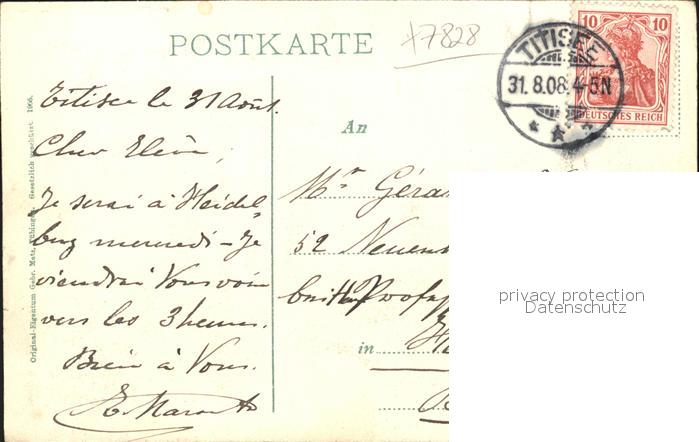 POSTKARTE
x7828
TITISEE
31.8.08.4-5N
10 10
DEUTSCHES REICH
Titisee le 31 Août.
Cher Elève,
Je serai à Heidel-
berg mercredi – Je
viendrai Vous voir
vers les 3 heures.
Bien à Vous.
An
Mr
52
in
Original-Eigentum Gebr. Metz, Tübingen. Gesetzlich geschützt. 1906.
privacy protection
Datenschutz